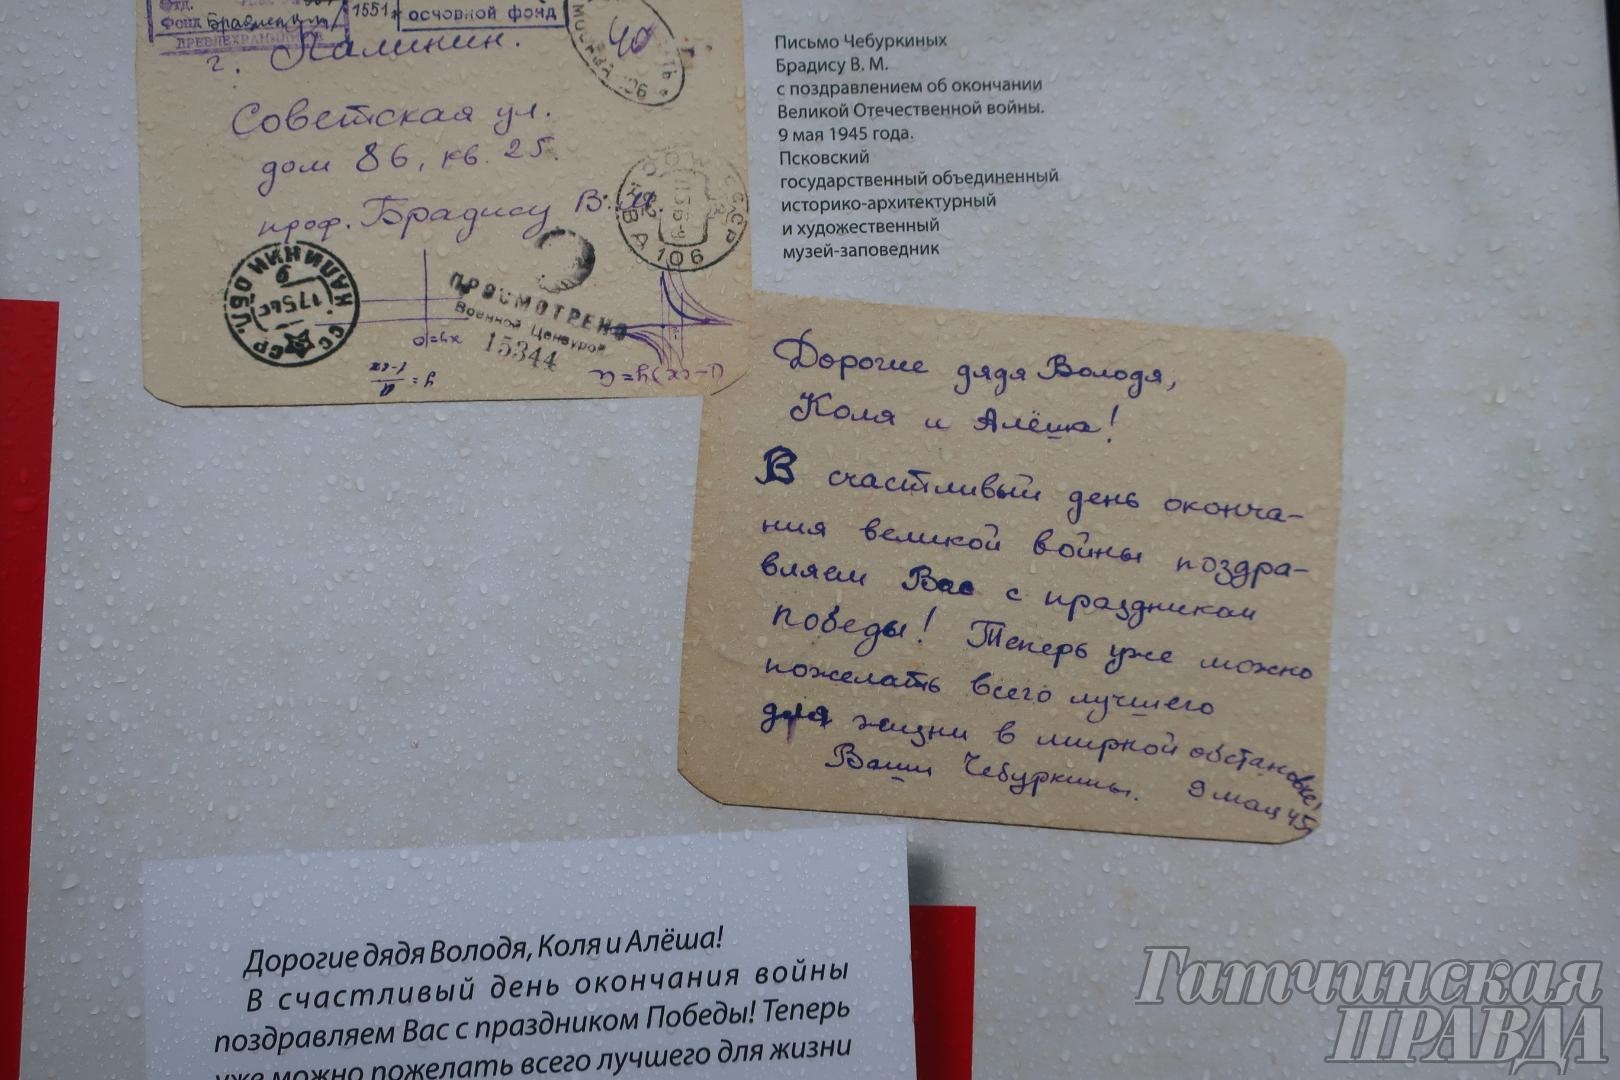 Отд.
Фонд
1551
основной фонд
ДРЕВЛЕХРАНИЛИЩЕ
г. Калинин.
40
Советская ул.
дом 86, кв. 25.
проф. Брадису В. М.
КАЛИНИН ОБЛ.
6
17545
МОСКВА 106
СССР
ПРОСМОТРЕНО
Военной Цензурой
15344
xy=a
y= a/1-cx
(1-cx)y=a
Письмо Чебуркиных
Брадису В. М.
с поздравлением об окончании
Великой Отечественной войны.
9 мая 1945 года.
Псковский
государственный объединенный
историко-архитектурный
и художественный
музей-заповедник
Дорогие дядя Володя,
Коля и Алёша!
В счастливый день оконча-
ния великой войны поздра-
вляем Вас с праздником
победы! Теперь уже можно
пожелать всего лучшего
для жизни в мирной обстановке!
Ваши Чебуркины. 9 мая 45
Дорогие дядя Володя, Коля и Алёша!
В счастливый день окончания войны
поздравляем Вас с праздником Победы! Теперь
уже можно пожелать всего лучшего для жизни
Гатчинская
ПРАВДА